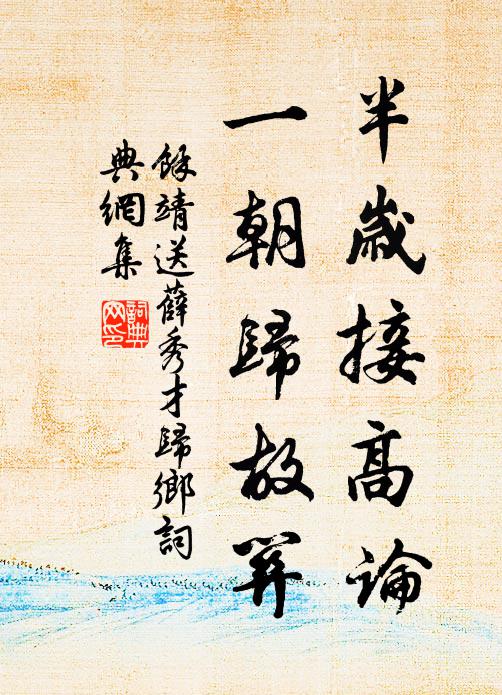 半歲接高論
一朝歸故關
餘靖送薛秀才歸鄉詞
典網集
詞典
网印